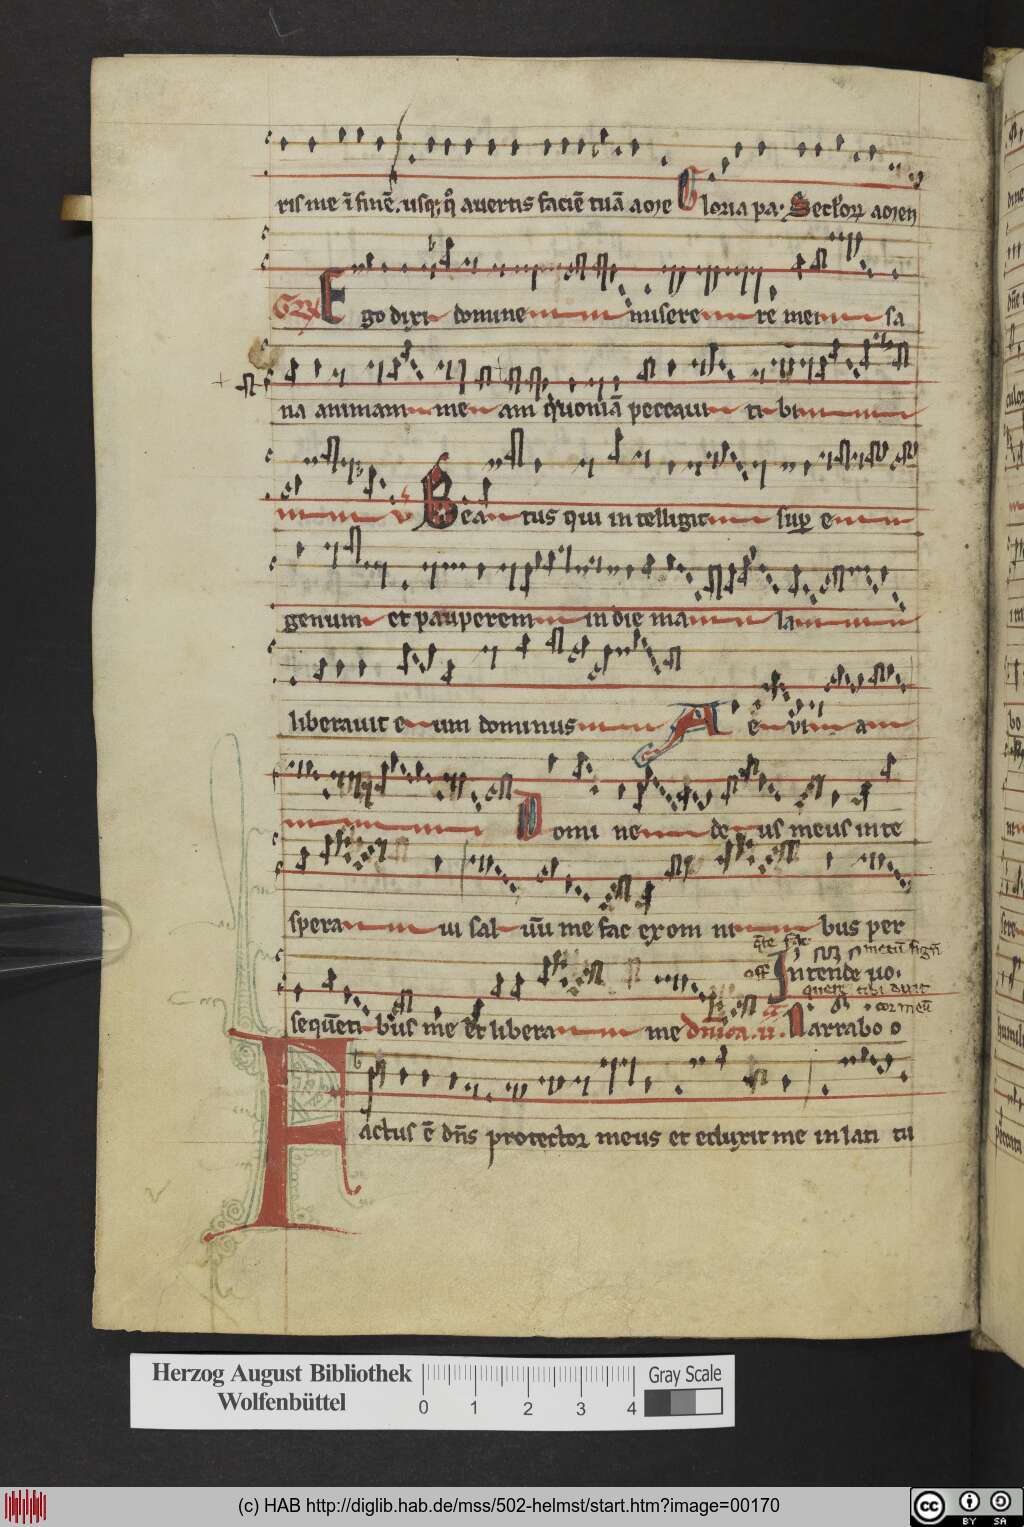 ris me ī finē. usq; q͛ avertis faciē tuā a me Gloria pa. Seculoꝝ amen
Ego dixi domine miserere mei sa
na animam meam quoniā peccavi tibi
v Beatus qui intelligit sup e
genum et pauperem in die mala
liberavit eum dominus Aevia
Domine deus meus in te
speravi salvū me fac ex omnibus per
q̄te fac metū signū
off Intende vo.
quem tibi dicit
cor meū
sequēti bus me et libera me dn̄ica. ii. Narrabo o
Factus ē dn̄s protector meus et eduxit me in lati tu
Herzog August Bibliothek
Wolfenbüttel
0 1 2 3 4
Gray Scale
(c) HAB http://diglib.hab.de/mss/502-helmst/start.htm?image=00170
cc BY SA